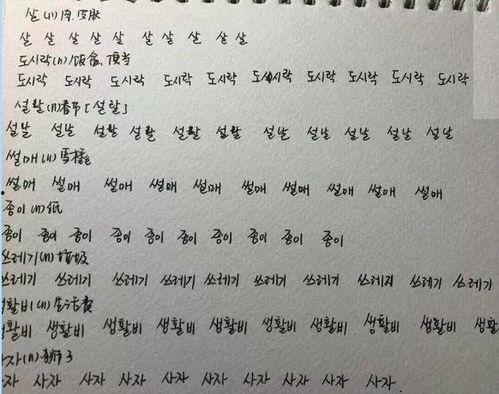 살 (n) 肉, 皮肤
살 살 살 살 살 살 살 살 살 살
도시락(n)/饭盒, 便当
도시락 도시락 도시락 도시락 도시락 도시락 도시락 도시락 도시락 도시락
설날 (n)春节 [설랄]
설날 설날 설날 설날 설날 설날 설날 설날 설날 설날 설날
썰매 (n) 雪橇
썰매 썰매 썰매 썰매 썰매 썰매 썰매 썰매 썰매 썰매
종이 (n) 纸
종이 종이 종이 종이 종이 종이 종이 종이 종이 종이
쓰레기 (n) 垃圾
쓰레기 쓰레기 쓰레기 쓰레기 쓰레기 쓰레기 쓰레기 쓰레기 쓰레기 쓰레기
생활비 (n) 生活费
생활비 생활비 생활비 생활비 생활비 생활비 생활비 생활비 생활비
사자 (n) 狮子
사자 사자 사자 사자 사자 사자 사자 사자 사자 사자